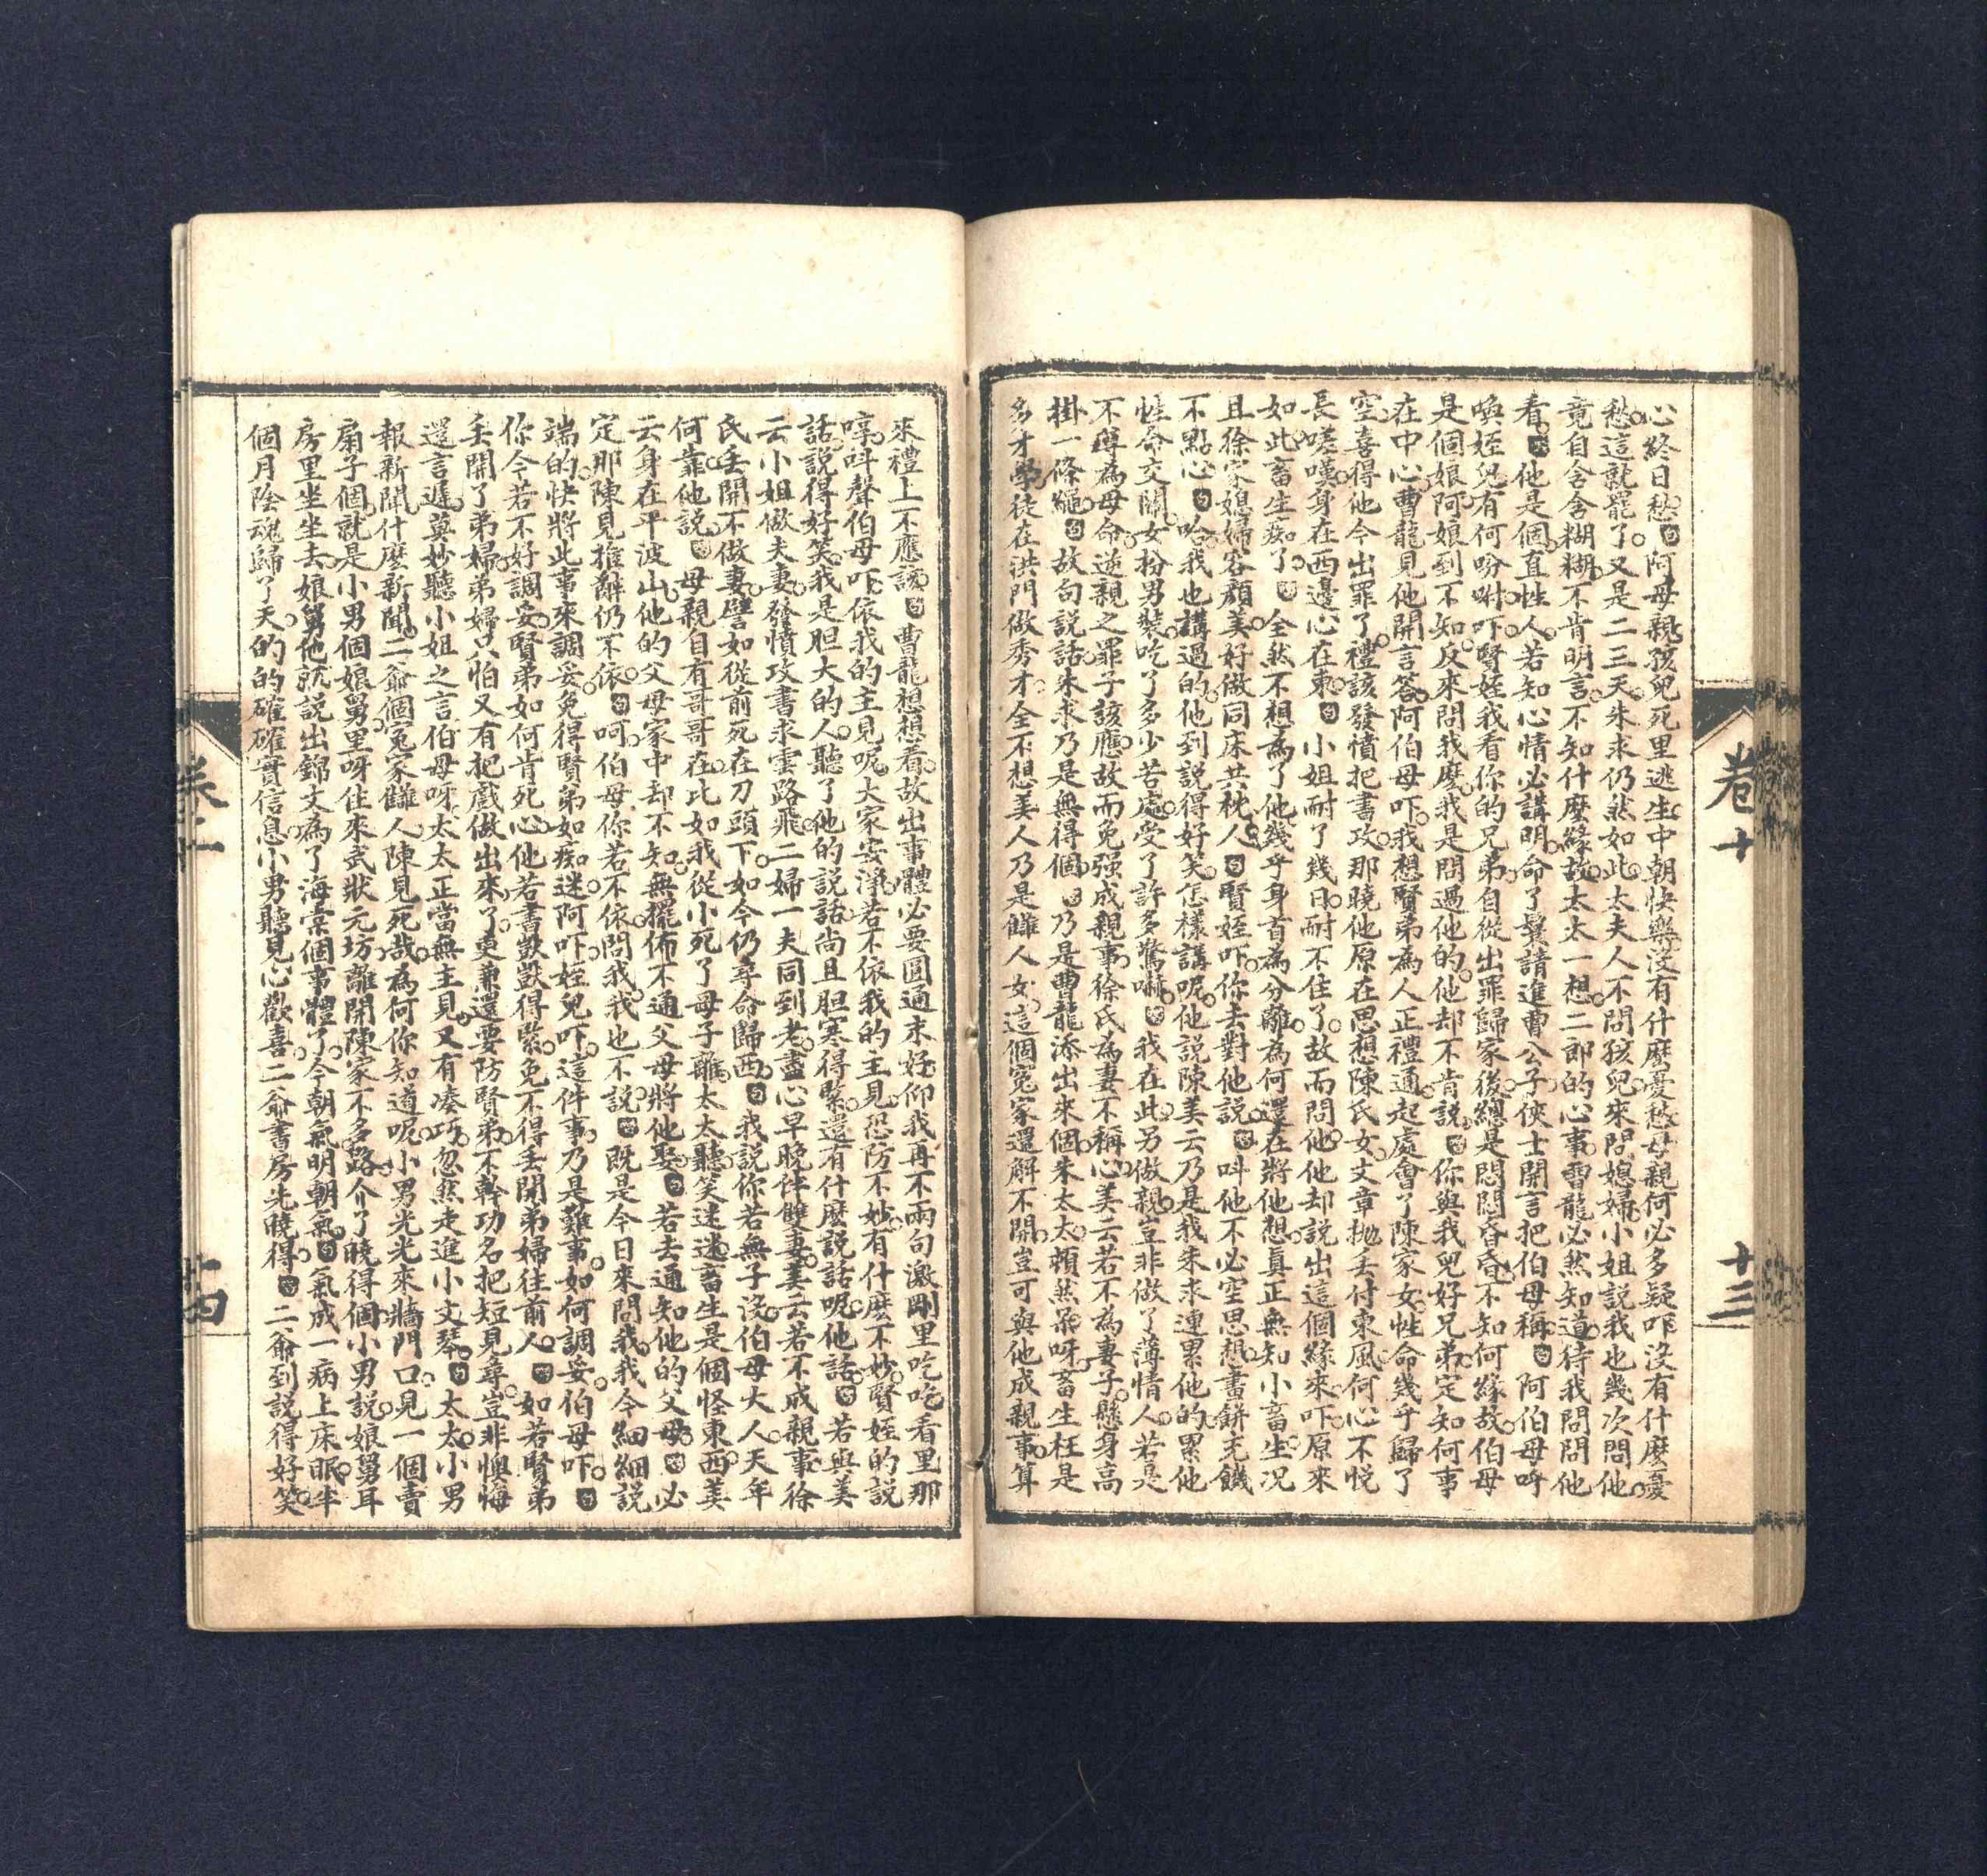 卷十
十三
心終日愁白阿母親孩兒死里逃生中朝快樂没有什麽憂愁母親何必多疑咋没有什麽憂
愁這就罷了又是二三天朱求仍然如此太夫人不問孩兒來問媳婦小姐説我也幾次問他他
竟自含含糊糊不肯明言不知什麽緣故太太一想二郎的心事曹龍必然知道待我問問他
看他是個直性人若知心情必講明命了鬟請進曹公子俠士開言把伯母稱白阿伯母呼
喚姪兒有何吩咐吓賢姪我看你的兄弟自從出罪歸家後總是悶悶昏昏不知何緣故伯母
是個娘阿娘到不知反來問我麽我是問過他的他却不肯説白你與我兒好兄弟定知何事
在中心曹龍見他開言答阿伯母吓我想賢弟為人正禮通起處會了陳家女性命幾乎歸了
空喜得他今出罪了禮該發憤把書攻那曉他原在思想陳氏女文章抛丢付東風何心不悦
長嗟嘆身在西邊心在東白小姐耐了幾日耐不住了故而問他他却説出這個緣來吓原來
如此畜生痴了白全然不想為了他幾乎身首為分離為何還在將他想真正無知小畜生况
且徐家媳婦容顔美好做同床共枕人白賢姪吓你去對他説白呌他不必空思想畫餅充饑
不點心白哈我也講過的他到説得好笑怎樣講呢他説陳美云乃是我朱求連累他的累他
性命交關女扮男裝吃了多少苦處受了許多驚嚇白我在此另做親豈非做了薄情人若是
不遵為母命逆親之罪子該應故而免强成親事徐氏為妻不稱心美云若不為妻子懸身高
掛一條繩白故句説話朱求乃是無得個白乃是曹龍添出來個朱太太頓然呆呀畜生枉是
多才學徒在洪門做秀才全不想美人乃是讎人女這個冤家還解不開豈可與他成親事算
來禮上不應該白曹龍想想着故出事體必要圓通末好仰我再不兩句激剛里吃吃看里那
哼呌聲伯母吓依我的主見呢大家安淨若不依我的主見恐防不妙有什麽不妙賢姪的説
話説得好笑我是胆大的人聽了他的説話尚且胆寒得緊還有什麽説話呢他話白若與美
云小姐做夫妻發憤攻書求雲路飛二婦一夫同到老盡心早晚伴雙妻美云若不成親事徐
氏丢開不做妻譬如從前死在刀頭下如今仍尋命歸西白我説你若無子没伯母大人天年
何靠他説白母親自有哥哥在比如我從小死了母子離太太聽笑迷迷畜生是個怪東西美
云身在平波山他的父母家中却不知無擺佈不通父母將他娶白若去通知他的父母白必
定那陳見推辭仍不依白呵伯母你若不依問我我也不説白既是今日來問我我今細細説
端的快將此事來調妥免得賢弟如痴迷阿吓姪兒吓這件事乃是難事如何調妥伯母吓白
你今若不好調妥賢弟如何肯死心他若書獃獃得緊免不得丢開弟婦往前人白如若賢弟
丢開了弟婦弟婦只怕又有把戲做出來了更兼還要防賢弟不幹功名把短見尋豈非懊悔
還言遲莫妙聽小姐之言伯母呀太太正當無主見又有凑巧忽然走進小文琴白太太小男
報新聞什麽新聞二爺個冤家讎人陳見死哉為何你知道呢小男光光來牆門口見一個賣
扇子個就是小男個娘舅里呀住來武狀元坊離開陳家不多路介了曉得個小男説娘舅耳
房里坐坐去娘舅他就説出錦文為了海棠個事體了今朝氣明朝氣白氣成一病上床眠半
個月陰魂歸了天的的確確實信息小男聽見心歡喜二爺書房先曉得白二爺到説得好笑